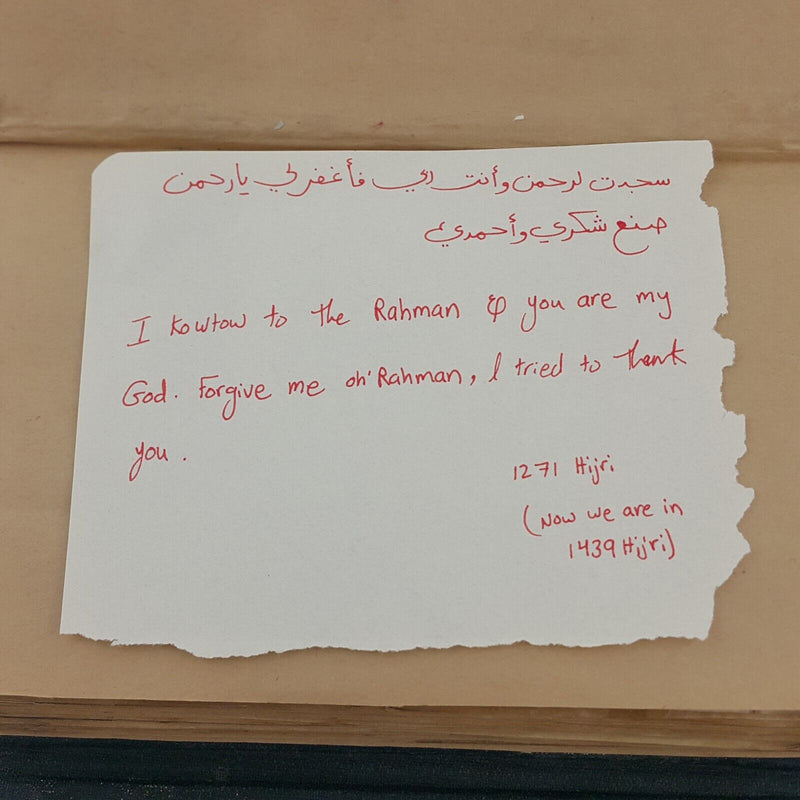 سجدت لرحمن وأنت ربي فأغفرلي يارحمن
صنع شكري وأحمدي
I Kowtow to the Rahman & you are my
God. Forgive me oh' Rahman, I tried to thank
you.
1271 Hijri
(Now we are in
1439 Hijri)